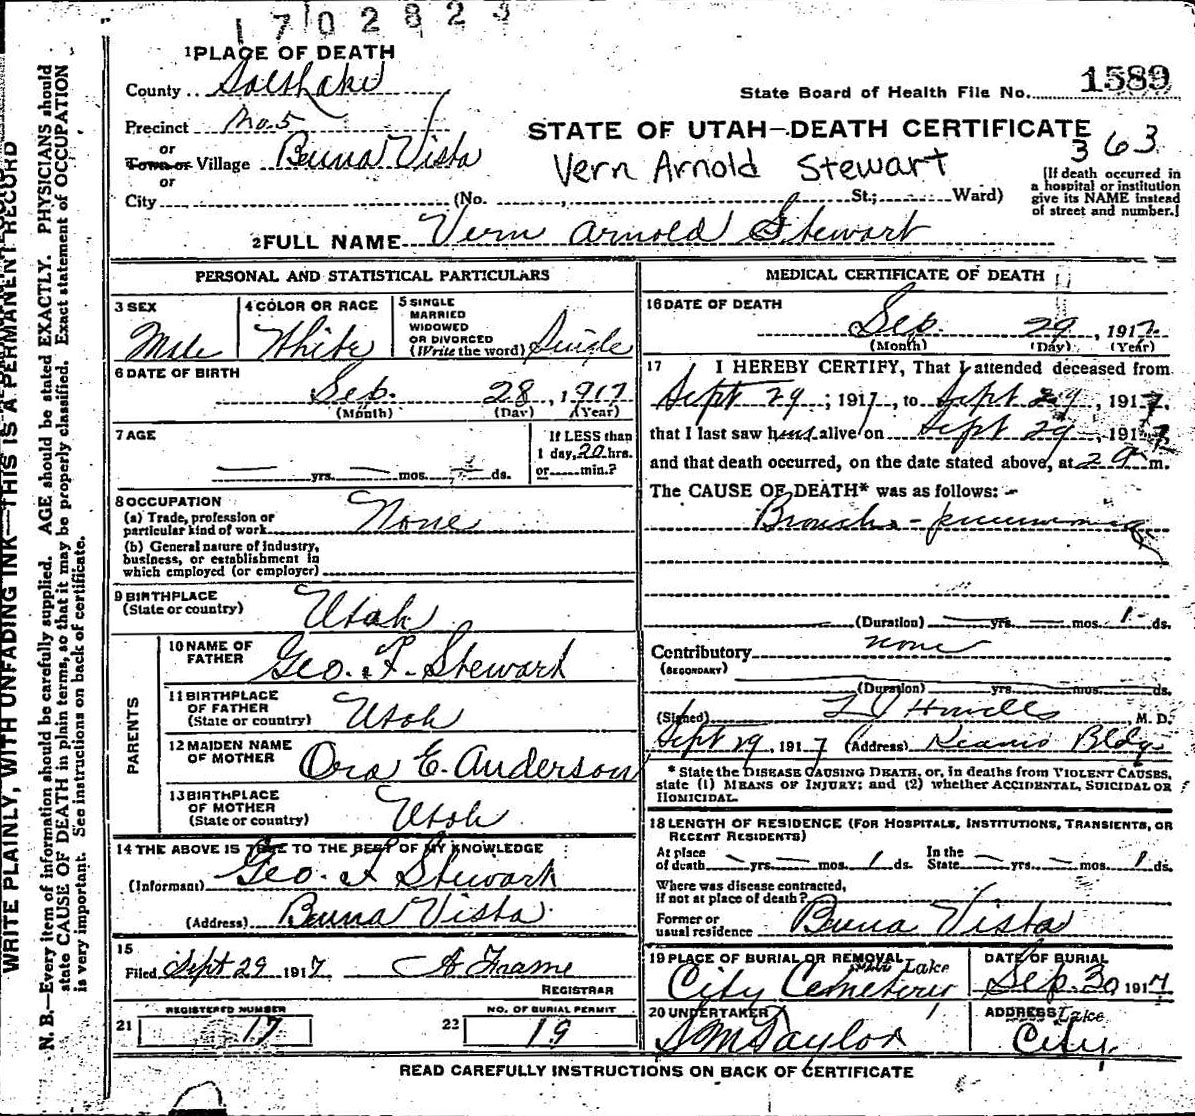 1702823
1 PLACE OF DEATH
County .. Salt Lake
State Board of Health File No. 1589
Precinct No. 5
STATE OF UTAH—DEATH CERTIFICATE
363
or
Town or Village Buna Vista
Vern Arnold Stewart
or
City (No. , St.; Ward)
[If death occurred in
a hospital or institution
give its NAME instead
of street and number.]
2 FULL NAME Vern Arnold Stewart
PERSONAL AND STATISTICAL PARTICULARS
3 SEX
Male
4 COLOR OR RACE
White
5 SINGLE
MARRIED
WIDOWED
OR DIVORCED
(Write the word) Single
6 DATE OF BIRTH
Sep. 28, 1917
(Month) (Day) (Year)
7 AGE
yrs. mos. ds.
If LESS than
1 day, 20 hrs.
or min.?
8 OCCUPATION
(a) Trade, profession or
particular kind of work None
(b) General nature of industry,
business, or establishment in
which employed (or employer)
9 BIRTHPLACE
(State or country) Utah
PARENTS
10 NAME OF
FATHER Geo. F. Stewart
11 BIRTHPLACE
OF FATHER
(State or country) Utah
12 MAIDEN NAME
OF MOTHER Ora E. Anderson
13 BIRTHPLACE
OF MOTHER
(State or country) Utah
14 THE ABOVE IS TRUE TO THE BEST OF MY KNOWLEDGE
(Informant) Geo. F Stewart
(Address) Buna Vista
15
Filed Sept 29 1917 A Frame
REGISTRAR
21 REGISTERED NUMBER 17
22 NO. OF BURIAL PERMIT 19
MEDICAL CERTIFICATE OF DEATH
16 DATE OF DEATH
Sep. 29, 1917
(Month) (Day) (Year)
17 I HEREBY CERTIFY, That I attended deceased from
Sept 29; 1917, to Sept 29, 1917
that I last saw him alive on Sept 29, 1917
and that death occurred, on the date stated above, at m.
The CAUSE OF DEATH* was as follows:
Broncho-pneumonia
(Duration) yrs. mos. 1 ds.
Contributory none
(SECONDARY)
(Duration) yrs. mos. ds.
(Signed) Howells, M. D.
Sept 29, 1917 (Address) Kearns Bldg
* State the DISEASE CAUSING DEATH, or, in deaths from VIOLENT CAUSES,
state (1) MEANS OF INJURY; and (2) whether ACCIDENTAL, SUICIDAL OR
HOMICIDAL.
18 LENGTH OF RESIDENCE (FOR HOSPITALS, INSTITUTIONS, TRANSIENTS, OR
RECENT RESIDENTS)
At place
of death yrs. mos. 1 ds.
In the
State yrs. mos. 1 ds.
Where was disease contracted,
if not at place of death?
Former or
usual residence Buna Vista
19 PLACE OF BURIAL OR REMOVAL
Salt Lake
City Cemetery
DATE OF BURIAL
Sep. 30 1917
20 UNDERTAKER
S M Taylor
ADDRESS Lake
City.
READ CAREFULLY INSTRUCTIONS ON BACK OF CERTIFICATE
WRITE PLAINLY, WITH UNFADING INK—THIS IS A PERMANENT RECORD
N. B.—Every item of information should be carefully supplied. AGE should be stated EXACTLY. PHYSICIANS should
state CAUSE OF DEATH in plain terms, so that it may be properly classified. Exact statement of OCCUPATION
is very important. See instructions on back of certificate.